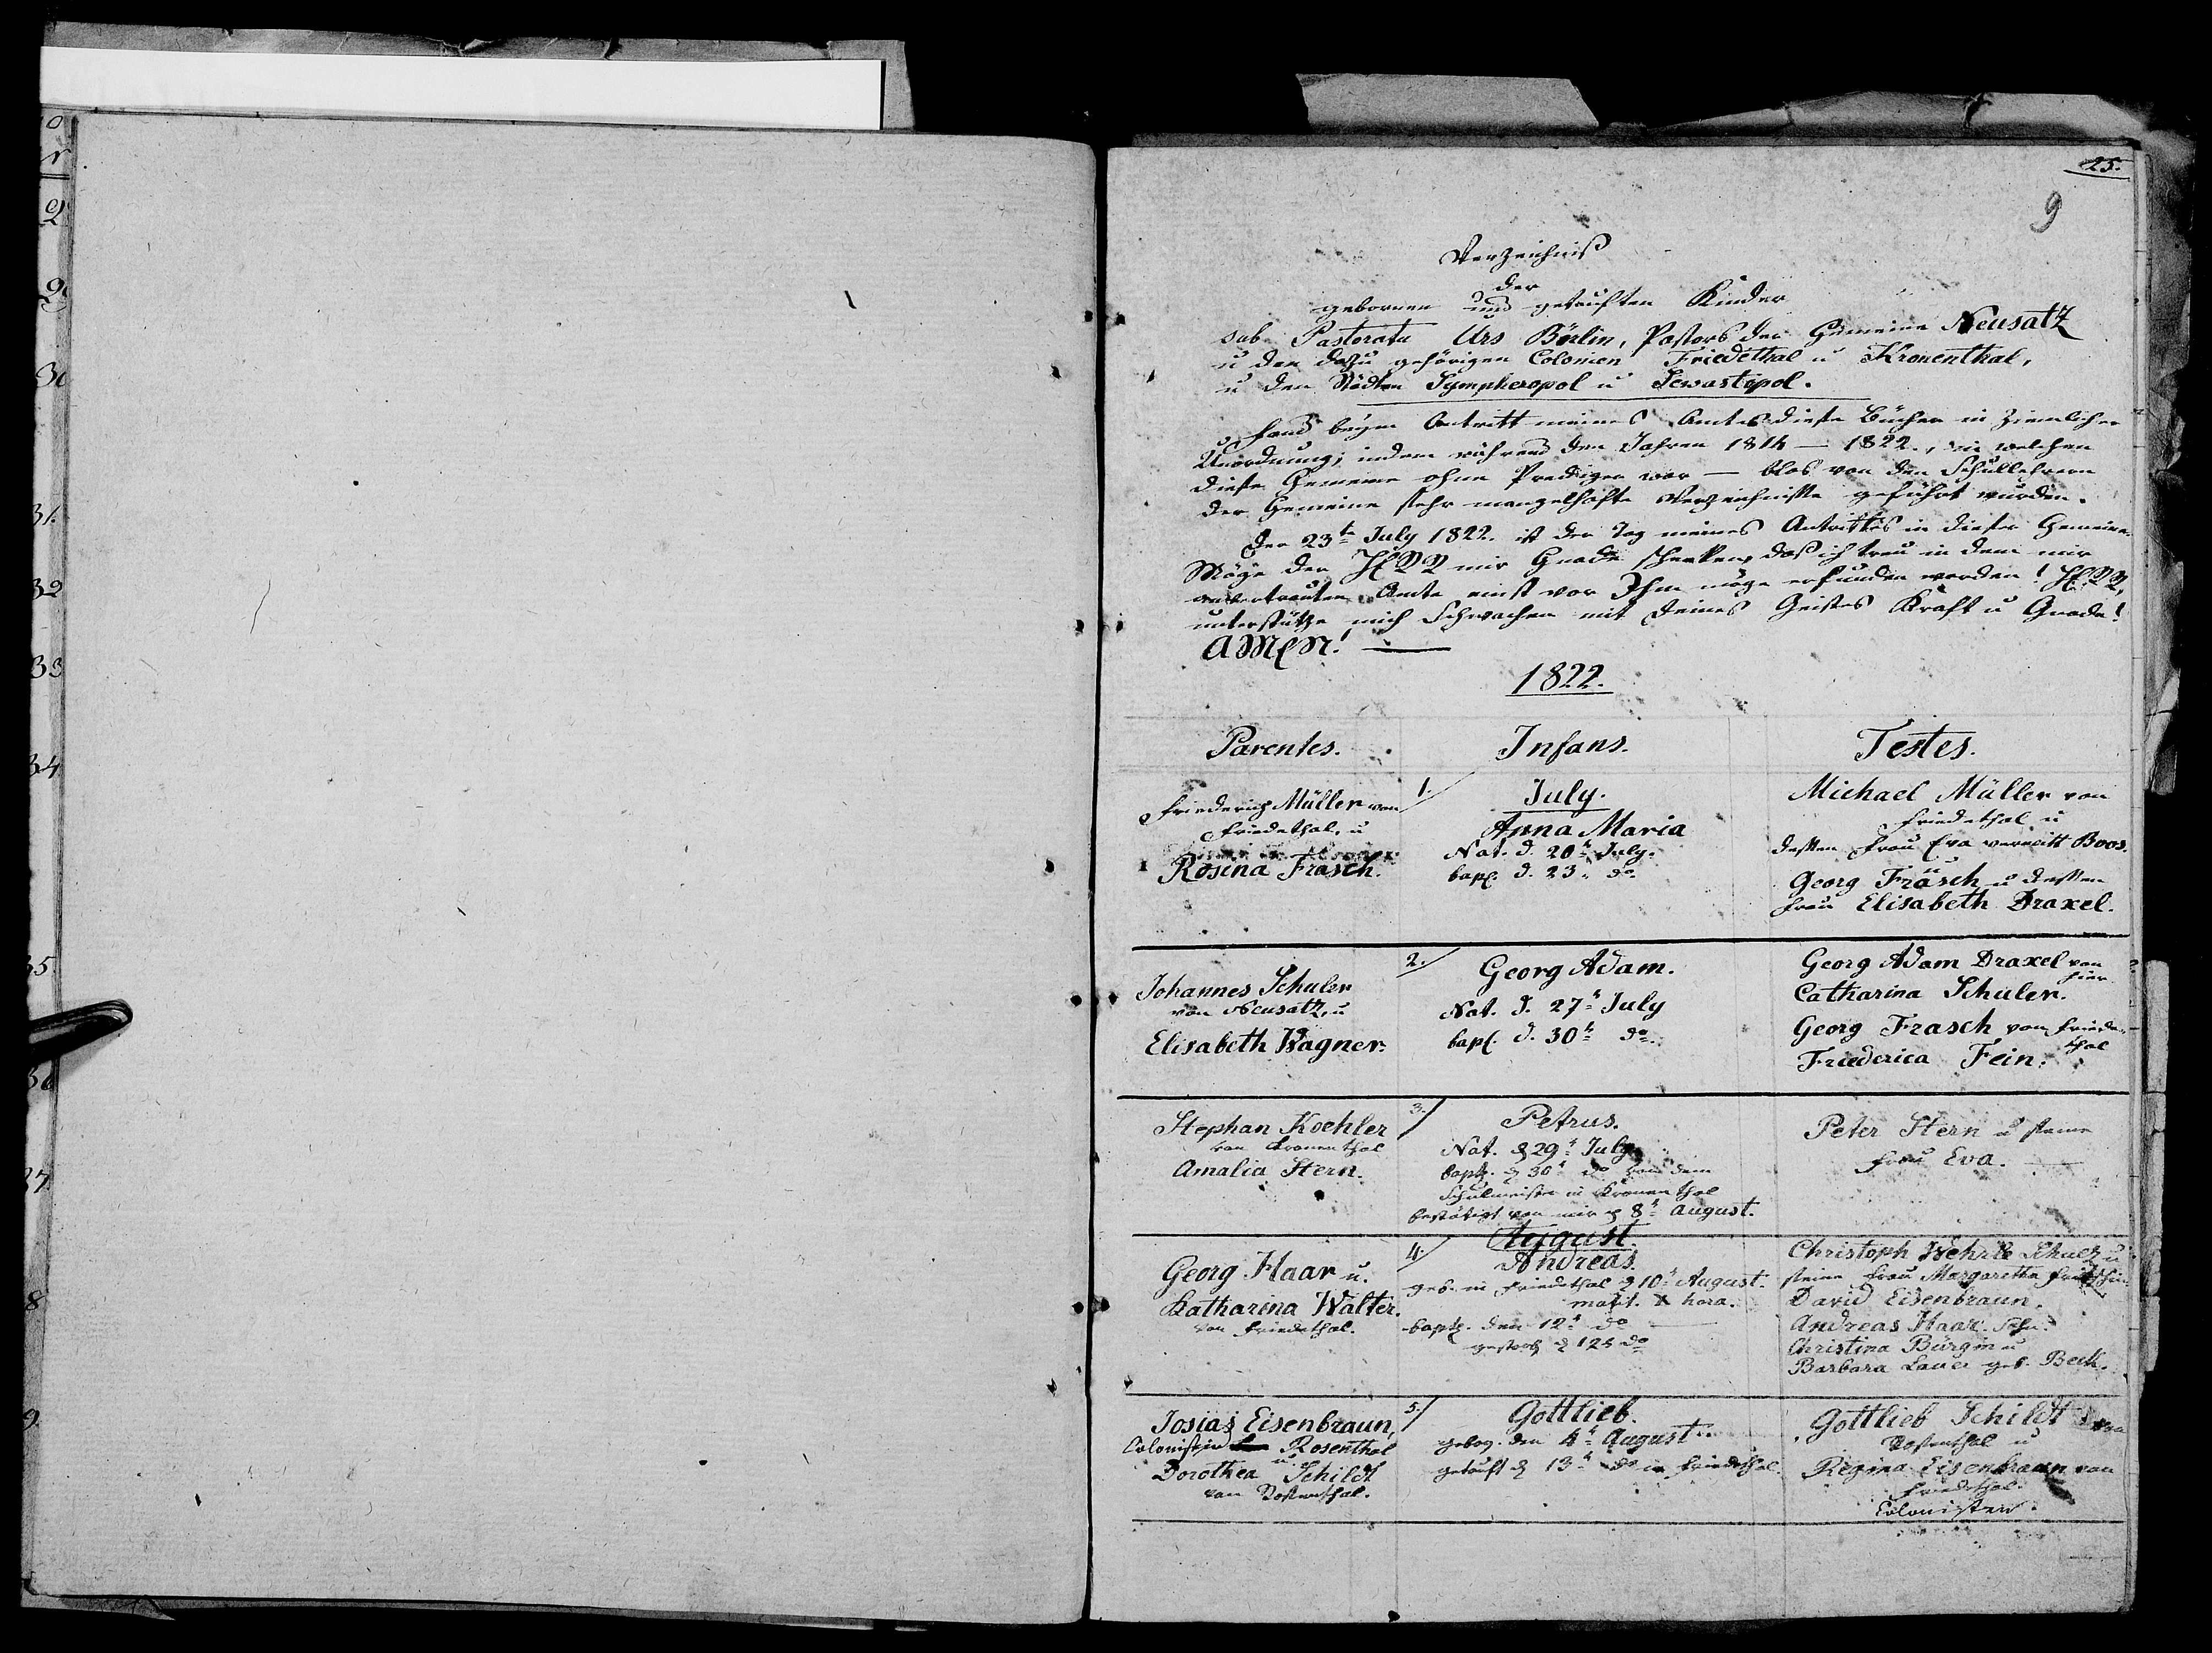 25.
9
Verzeichniß
der
gebornen und getauften Kinder
sub Pastoratu Urs Börlin, Pastors der Gemeine Neusatz
u der dazu gehörigen Colonien Friedethal u Kronenthal,
u der Städten Sympheropol u Sewastopol.
fand beym Antritt meines Amtes diese Bücher in ziemlicher
Unordnung; indem während den Jahren 1814 — 1822., in welchen
diese Gemeine ohne Prediger war — blos von den Schullehrern
der Gemeine sehr mangelhafte Verzeichnisse geführt wurden.
Der 23te July 1822. ist der Tag meines Antrittes in dieser Gemeine.
Möge der HERR mir Gnade schenken, daß ich treu in dem mir
anvertrauten Amte einst vor Ihm möge erfunden werden! HERR,
unterstütze mich Schwachen mit Deines Geistes Kraft u Gnade!
AMEN! —
1822.
Parentes. Infans. Testes.
1.
Friederich Müller von
Friedethal, u
Rosina Frasch.
July.
Anna Maria
Nat. d. 20t July.
bapt. d. 23. do
Michael Müller von
Friedethal u
dessen Frau Eva verwitt Boos.
u
Georg Fräsch u dessen
Frau Elisabeth Draxel.
2.
Johannes Schuler
von Neusatz, u
Elisabeth Wagner.
Georg Adam.
Nat. d. 27t July
bapt. d. 30t do.
Georg Adam Draxel von
hier
Catharina Schuler.
Georg Frasch von Friede-
thal
Friederica Fein.
3.
Stephan Koehler
von Kronenthal
Amalia Stern.
Petrus.
Nat. d 29t July
bapt. d 30t do von dem
Schulmeister in Kronenthal
bestätigt von mir d 8t August.
Peter Stern u seine
Frau Eva. —
4.
Georg Haar u.
Katharina Walter.
von Friedethal.
August.
Andreas.
geb. in Friedethal d 10t August.
matut. X hora.
bapt. den 12t do —
gestorb d 12t do
Christoph Wehrle Schulz u
seine Frau Margaretha
David Eisenbraun.
Andreas Haar.
Christina Bürgin u
Barbara Lauer geb. Beck.
5.
Josias Eisenbraun,
Colonist in Rosenthal
u.
Dorothea Schildt
von Rosenthal.
Gottlieb.
gebor. den 4t August.
getauft d 13t do in Friedethal.
Gottlieb Schildt von
Rosenthal u
Regina Eisenbraun von
Friedethal.
Colonisten.